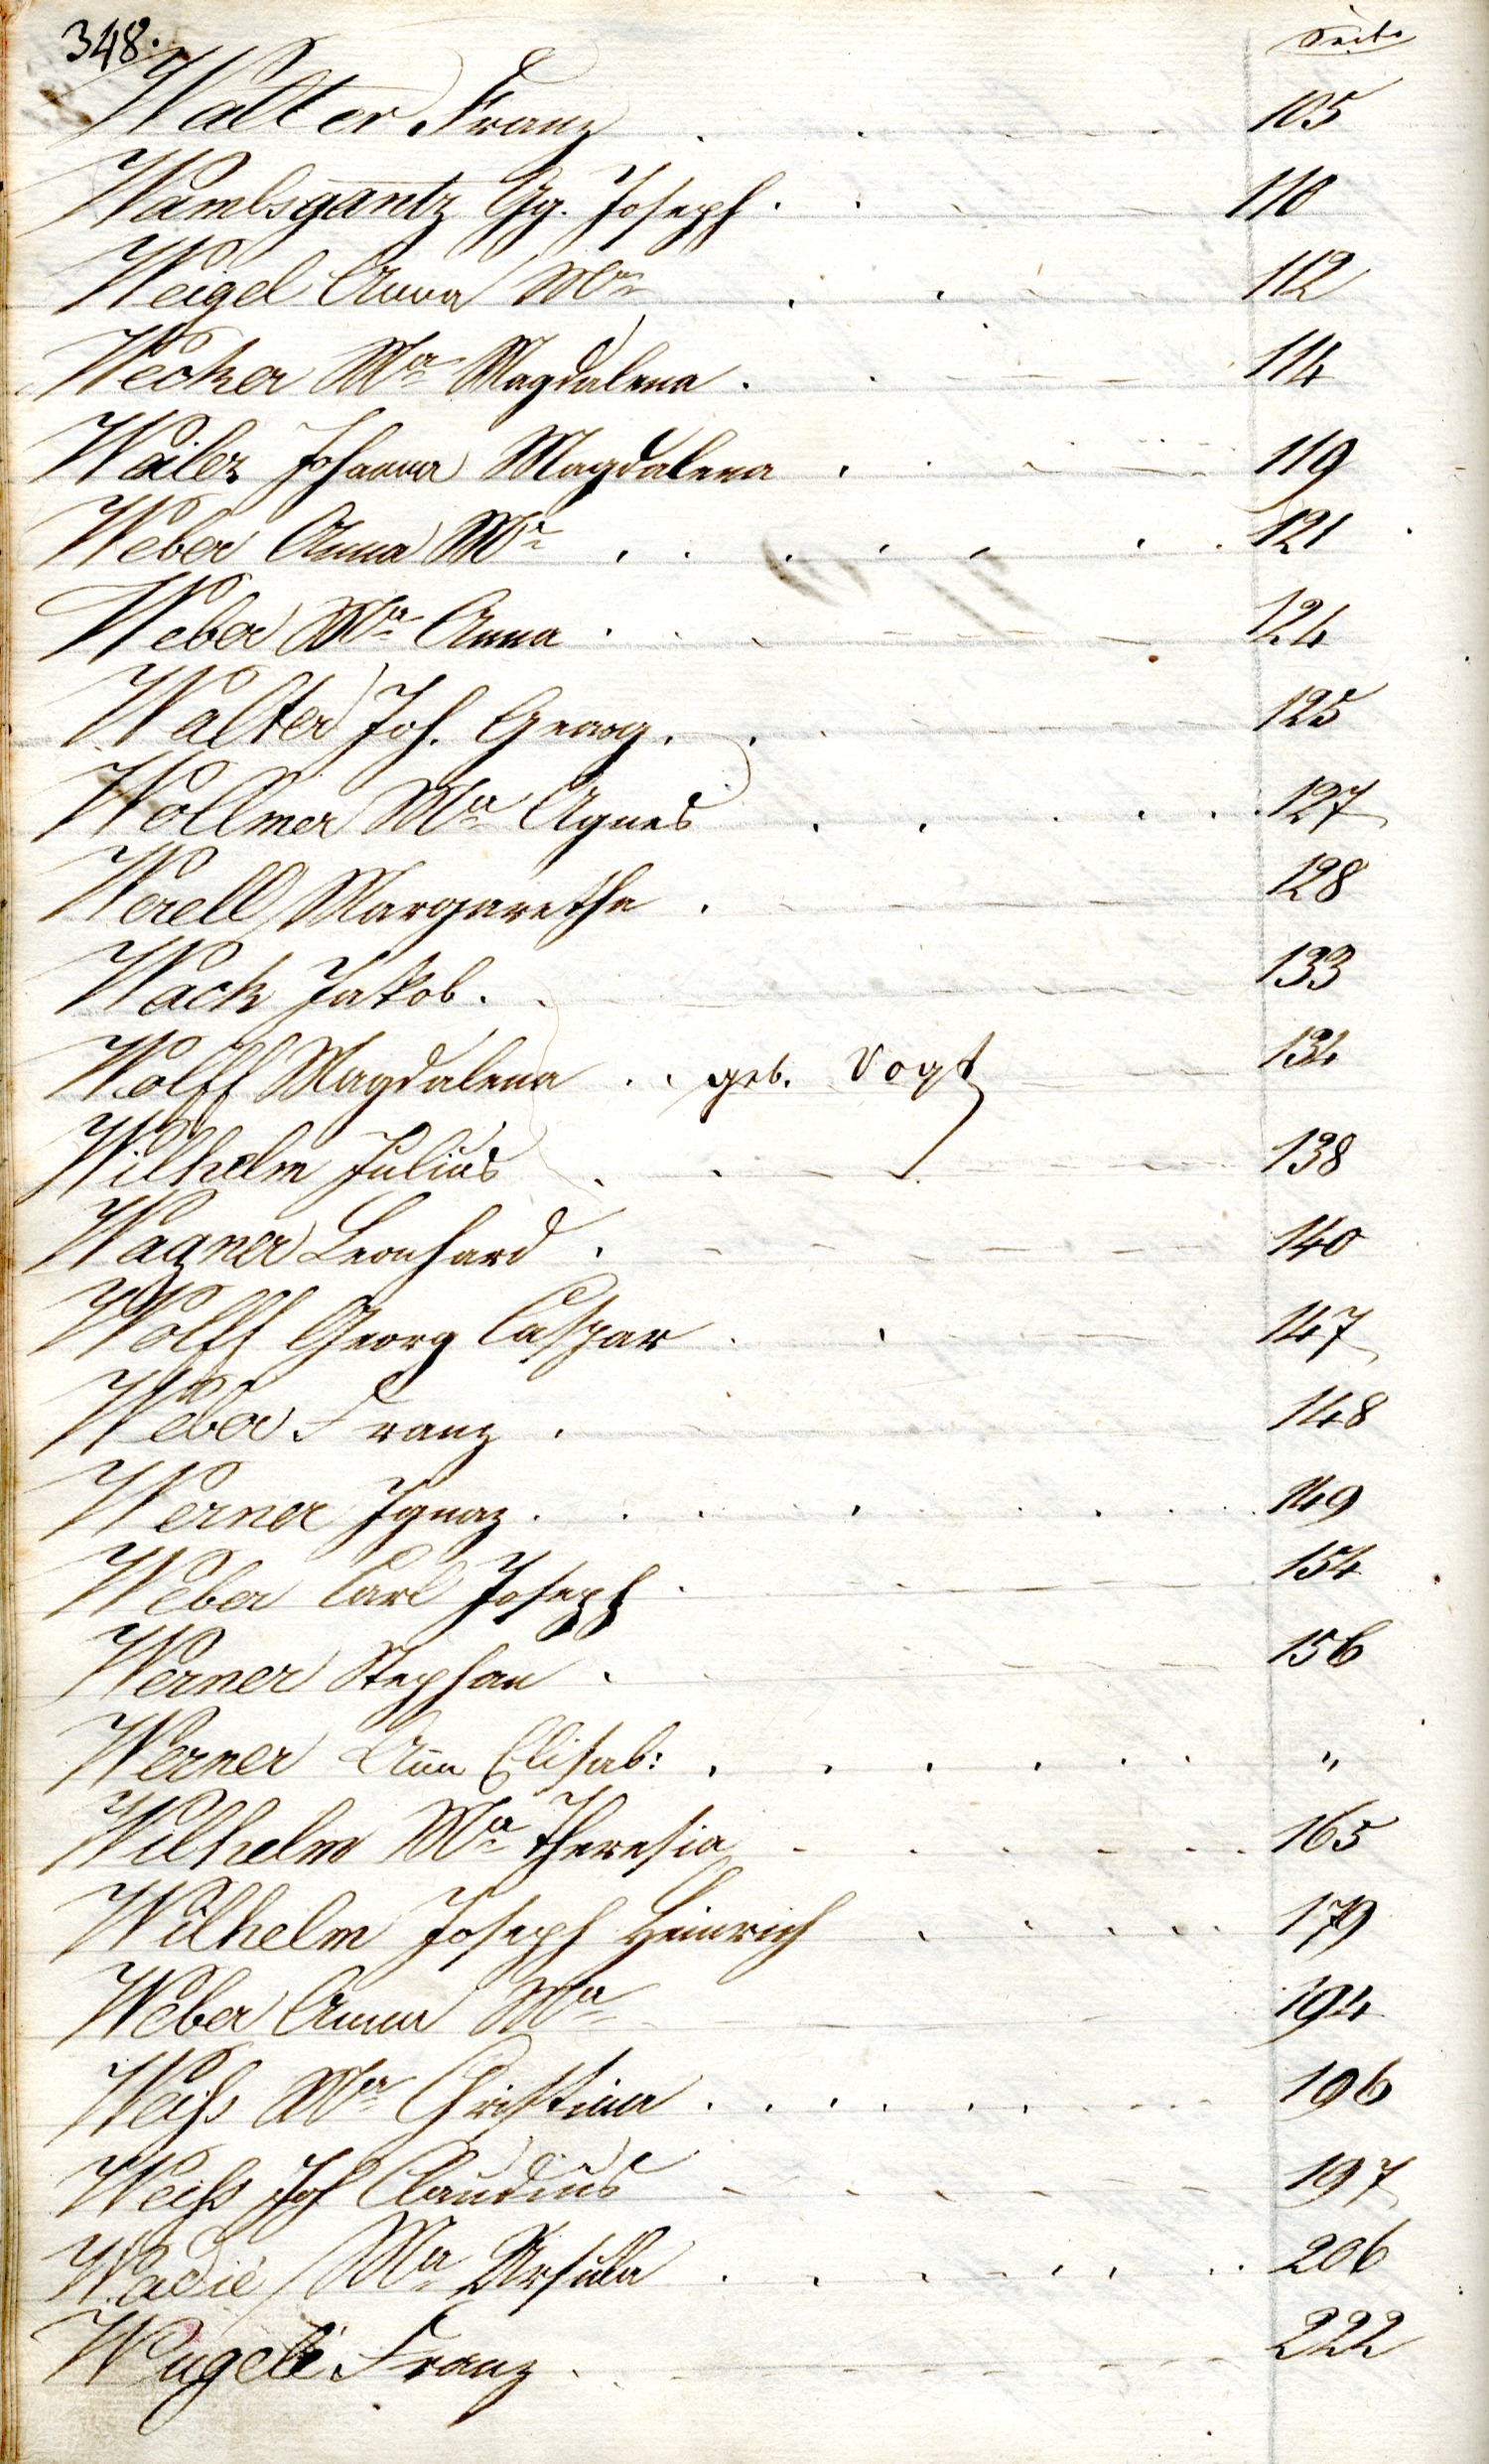 348.
Seite
Walter Franz 105
Wambsgantz Gg. Joseph 110
Weigel Anna Ma 112
Wecker Ma Magdalena 114
Weiler Johanna Magdalena 119
Weber Anna Ma 121
Weber Ma Anna 124
Walter Joh. Georg 125
Wollmer Ma Agnes 127
Werell Margaretha 128
Wack Jakob 133
Wolff Magdalena geb. Vogt 134
Wilhelm Julius 138
Wagner Leonhard 140
Wolff Georg Caspar 147
Weber Franz 148
Werner Ignaz 149
Weber Carl Joseph 154
Werner Stephan 156
Werner Ann̄a Elisab: "
Wilhelm Ma Theresia 165
Wilhelm Joseph Heinrich 179
Weber Anna Ma 194
Weiß Ma Christina 196
Weiß Joh Claudius 197
Wadié Ma Ursula 206
Franz 222